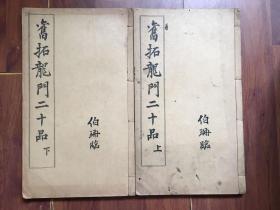 舊拓龍門二十品 上
伯珊臨
舊拓龍門二十品 下
伯珊臨